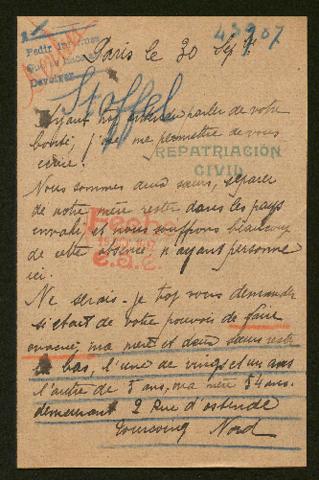 47907
Pedir informes
Devolver
Paris le 30 Sep
Stoffel
Ayant trop entendu parler de votre
bonté, j'ose me permettre de vous
écrire !
REPATRIACIÓN
CIVIL
Nous sommes deux sœurs, séparées
de notre mère restée dans les pays
envahi, et nous souffrons beaucoup
de cette absence, n'ayant personne
ici.
Fecha
Ne serais-je trop vous demander
si etait de votre pouvoir de faire
ma mere et deux sœurs reste
la bas, l'une de vingt et un ans
l'autre de 8 ans, ma mère 54 ans.
demeurant 2 Rue d'ostende
Tourcoing Nord